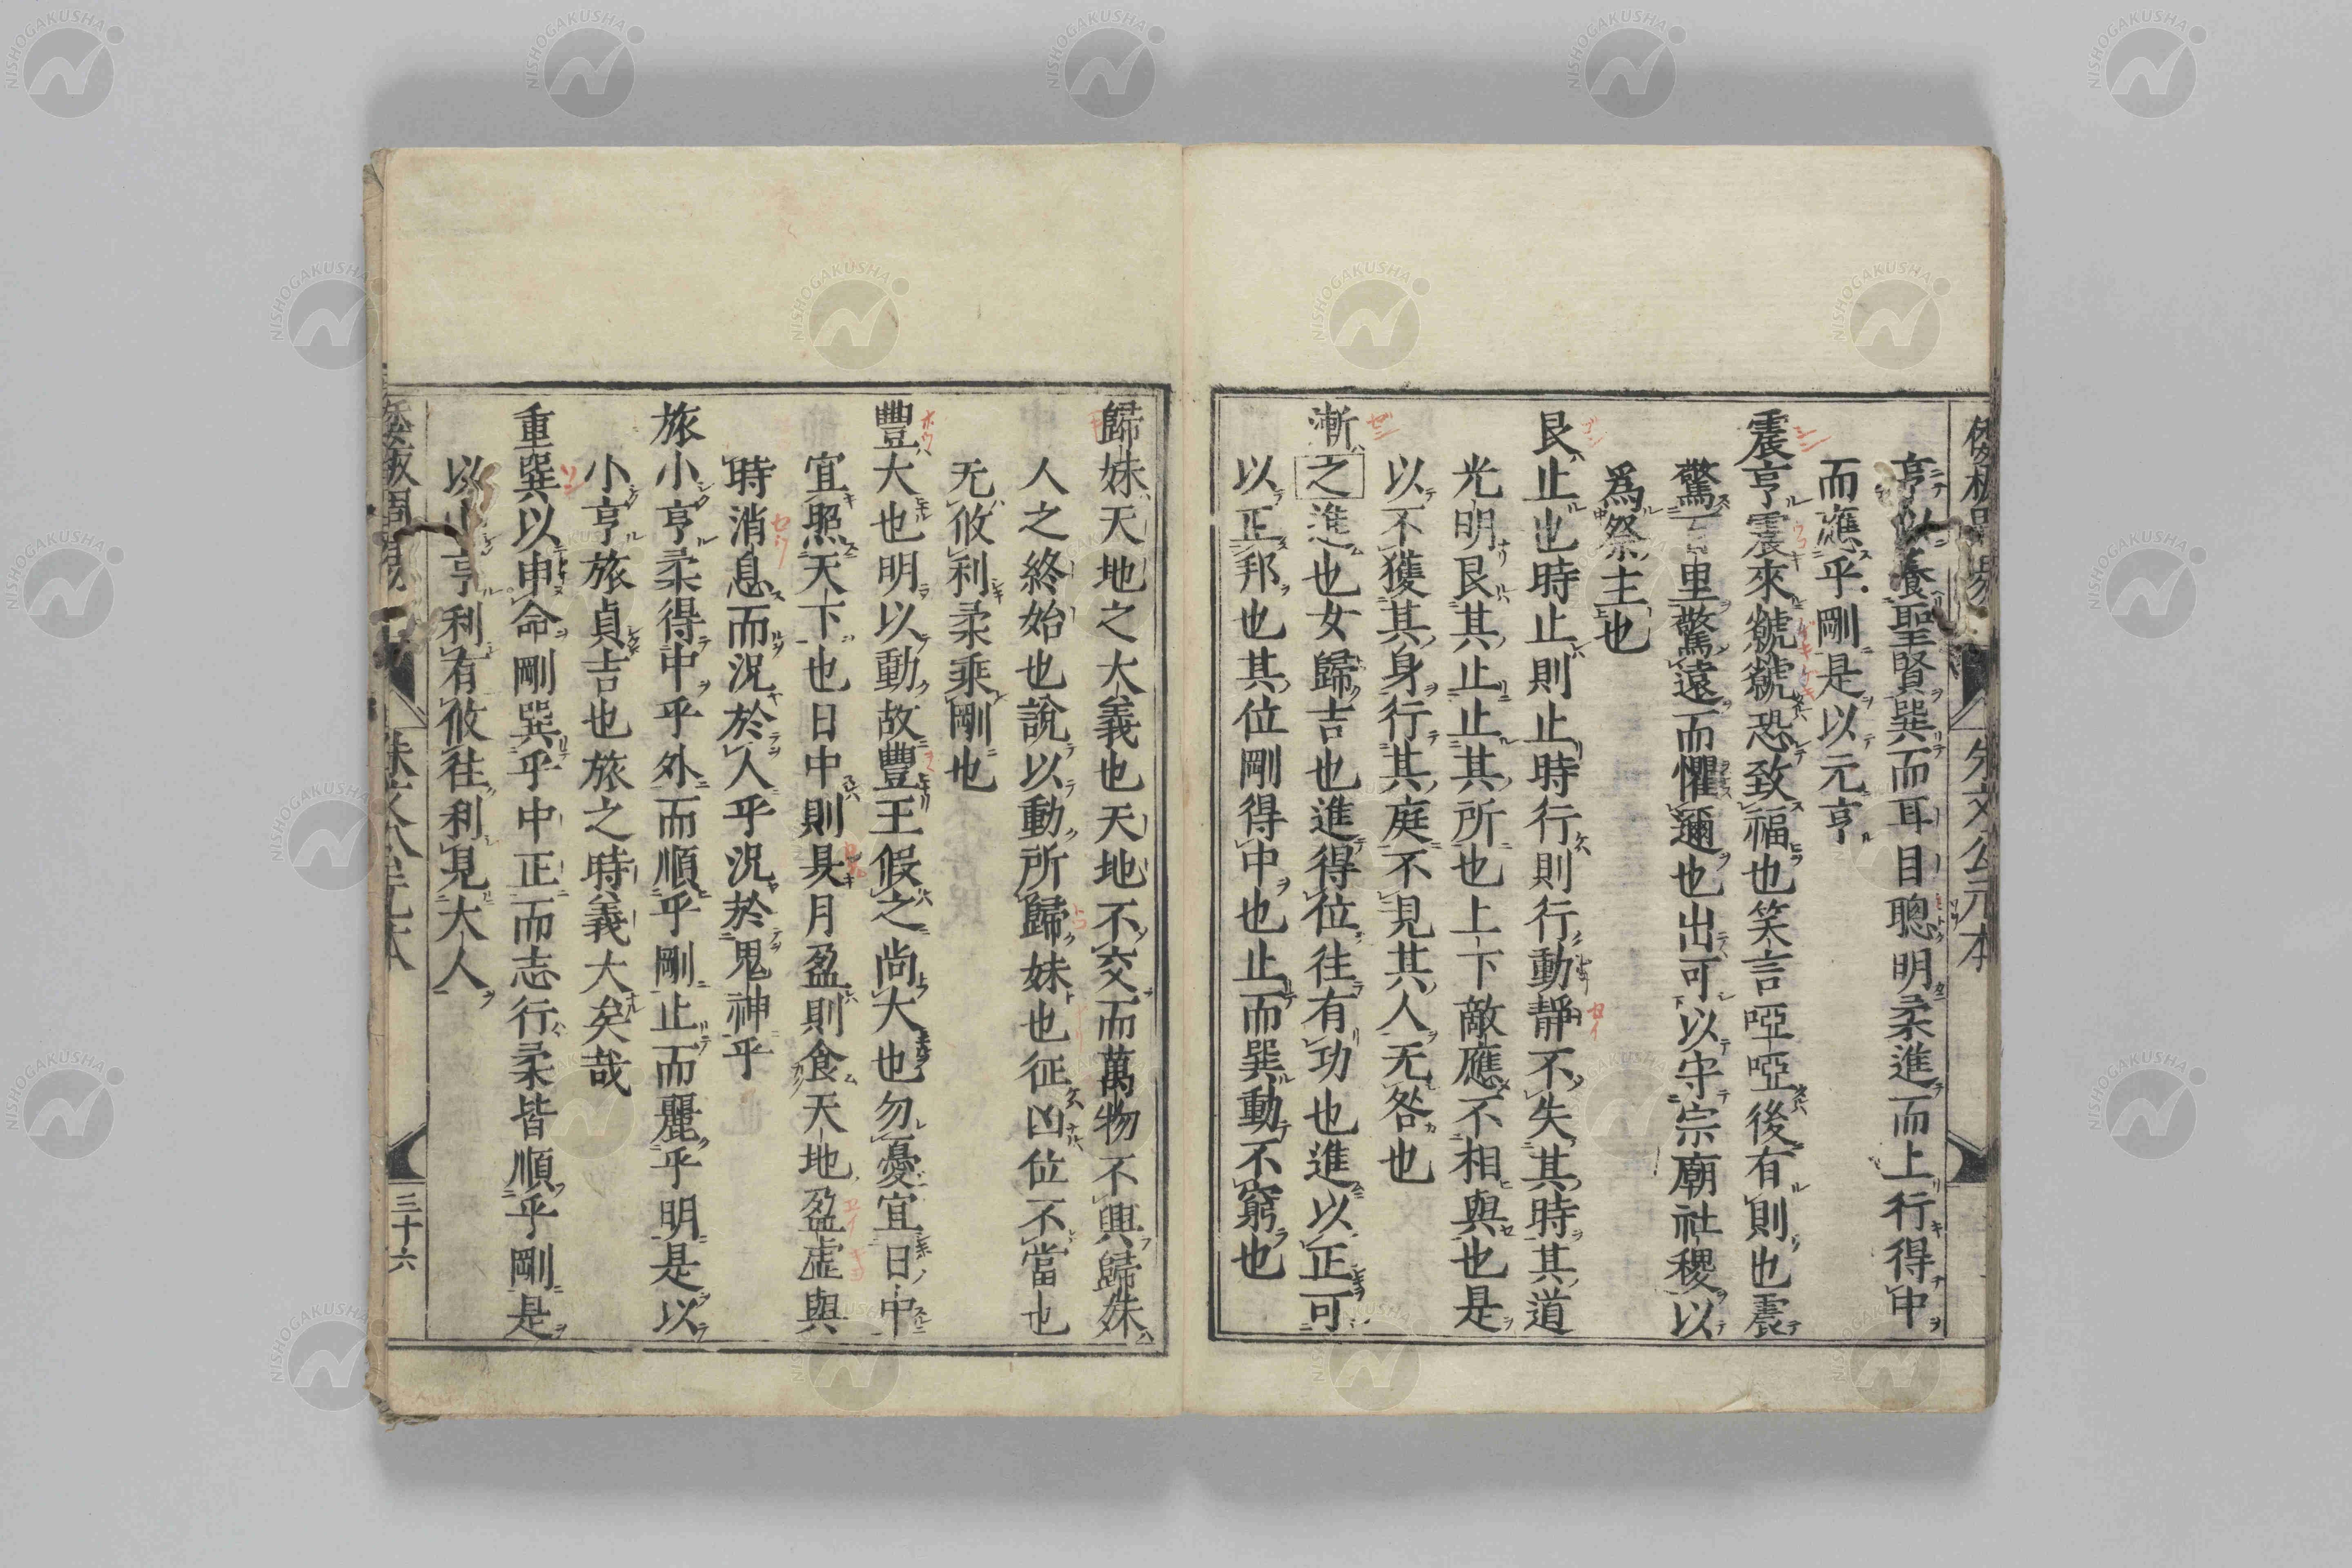 亨以養聖賢巽而耳目聰明柔進而上行得中
而應乎剛是以元亨
震亨震來虩虩恐致福也笑言啞啞後有則也震
驚百里驚遠而懼邇也出可以守宗廟社稷以
爲祭主也
艮止也時止則止時行則行動靜不失其時其道
光明艮其止止其所也上下敵應不相與也是
以不獲其身行其庭不見其人无咎也
漸之進也女歸吉也進得位往有功也進以正可
以正邦也其位剛得中也止而巽動不窮也
朱文公元本
歸妹天地之大義也天地不交而萬物不興歸妹
人之終始也說以動所歸妹也征凶位不當也
无攸利柔乘剛也
豐大也明以動故豐王假之尚大也勿憂宜日中
宜照天下也日中則昃月盈則食天地盈虛與
時消息而況於人乎況於鬼神乎
旅小亨柔得中乎外而順乎剛止而麗乎明是以
小亨旅貞吉也旅之時義大矣哉
重巽以申命剛巽乎中正而志行柔皆順乎剛是
以小亨利有攸往利見大人
三十六
NISHOGAKUSHA